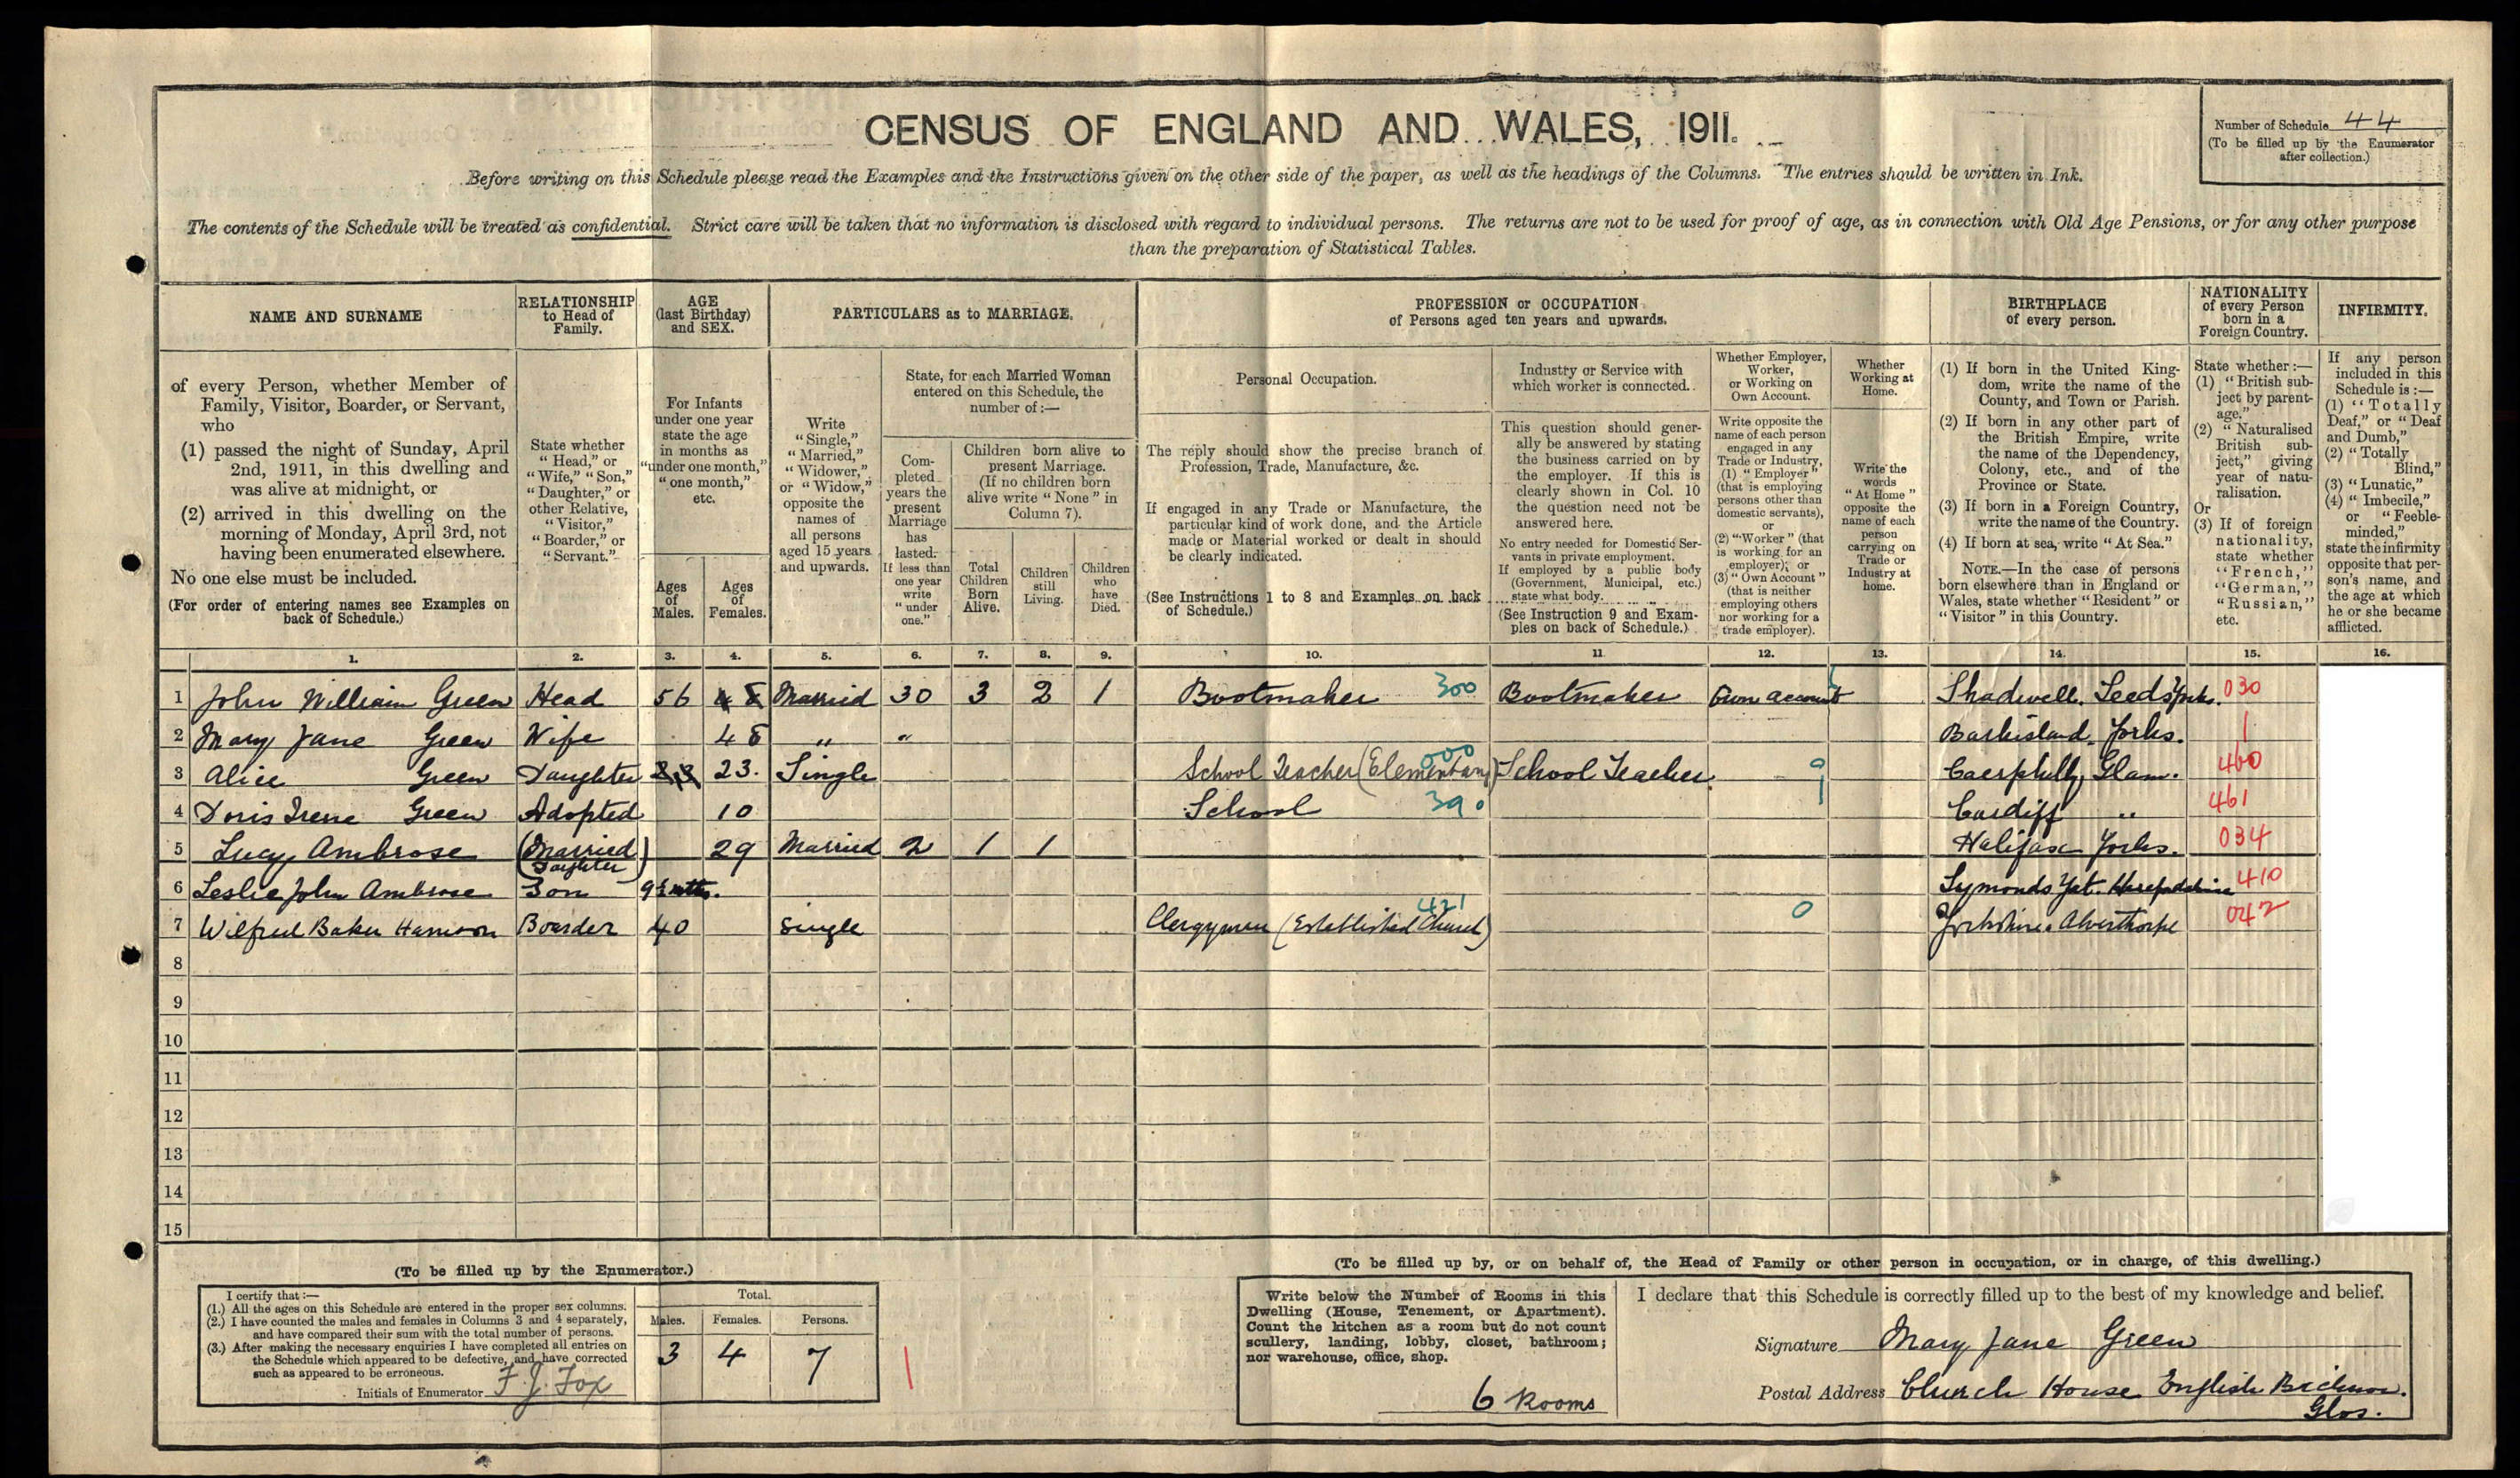 CENSUS OF ENGLAND AND WALES, 1911.
Number of Schedule 44
(To be filled up by the Enumerator
after collection.)
Before writing on this Schedule please read the Examples and the Instructions given on the other side of the paper, as well as the headings of the Columns. The entries should be written in Ink.
The contents of the Schedule will be treated as confidential. Strict care will be taken that no information is disclosed with regard to individual persons. The returns are not to be used for proof of age, as in connection with Old Age Pensions, or for any other purpose
than the preparation of Statistical Tables.
NAME AND SURNAME
of every Person, whether Member of
Family, Visitor, Boarder, or Servant,
who
(1) passed the night of Sunday, April
2nd, 1911, in this dwelling and
was alive at midnight, or
(2) arrived in this dwelling on the
morning of Monday, April 3rd, not
having been enumerated elsewhere.
No one else must be included.
(For order of entering names see Examples on
back of Schedule.)
RELATIONSHIP
to Head of
Family.
State whether
"Head," or
"Wife," "Son,"
"Daughter," or
other Relative,
"Visitor,"
"Boarder," or
"Servant."
AGE
(last Birthday)
and SEX.
For Infants
under one year
state the age
in months as
"under one month,"
"one month,"
etc.
Ages
of
Males.
Ages
of
Females.
PARTICULARS as to MARRIAGE.
Write
"Single,"
"Married,"
"Widower,"
or "Widow,"
opposite the
names of
all persons
aged 15 years
and upwards.
State, for each Married Woman
entered on this Schedule, the
number of:—
Com-
pleted
years the
present
Marriage
has
lasted.
If less than
one year
write
"under
one."
Children born alive to
present Marriage.
(If no children born
alive write "None" in
Column 7).
Total
Children
Born
Alive.
Children
still
Living.
Children
who
have
Died.
PROFESSION or OCCUPATION
of Persons aged ten years and upwards.
Personal Occupation.
The reply should show the precise branch of
Profession, Trade, Manufacture, &c.
If engaged in any Trade or Manufacture, the
particular kind of work done, and the Article
made or Material worked or dealt in should
be clearly indicated.
(See Instructions 1 to 8 and Examples on back
of Schedule.)
Industry or Service with
which worker is connected.
This question should gener-
ally be answered by stating
the business carried on by
the employer. If this is
clearly shown in Col. 10
the question need not be
answered here.
No entry needed for Domestic Ser-
vants in private employment.
If employed by a public body
(Government, Municipal, etc.)
state what body.
(See Instruction 9 and Exam-
ples on back of Schedule.)
Whether Employer,
Worker,
or Working on
Own Account.
Write opposite the
name of each person
engaged in any
Trade or Industry,
(1) "Employer"
(that is employing
persons other than
domestic servants),
or
(2) "Worker" (that
is working for an
employer); or
(3) "Own Account"
(that is neither
employing others
nor working for a
trade employer).
Whether
Working at
Home.
Write the
words
"At Home"
opposite the
name of each
person
carrying on
Trade or
Industry at
home.
BIRTHPLACE
of every person.
(1) If born in the United King-
dom, write the name of the
County, and Town or Parish.
(2) If born in any other part of
the British Empire, write
the name of the Dependency,
Colony, etc., and of the
Province or State.
(3) If born in a Foreign Country,
write the name of the Country.
(4) If born at sea, write "At Sea."
NOTE.—In the case of persons
born elsewhere than in England or
Wales, state whether "Resident" or
"Visitor" in this Country.
NATIONALITY
of every Person
born in a
Foreign Country.
State whether:—
(1) "British sub-
ject by parent-
age."
(2) "Naturalised
British sub-
ject," giving
year of natu-
ralisation.
Or
(3) If of foreign
nationality,
state whether
"French,"
"German,"
"Russian,"
etc.
INFIRMITY.
If any person
included in this
Schedule is:—
(1) "Totally
Deaf," or "Deaf
and Dumb,"
(2) "Totally
Blind,"
(3) "Lunatic,"
(4) "Imbecile,"
or "Feeble-
minded,"
state the infirmity
opposite that per-
son's name, and
the age at which
he or she became
afflicted.
1. 2. 3. 4. 5. 6. 7. 8. 9. 10. 11. 12. 13. 14. 15. 16.
1 John William Green Head 56 48 Married 30 3 2 1 Bootmaker 300 Bootmaker Own account Shadwell. Leeds Yorks. 030
2 Mary Jane Green Wife 48 " " Barkisland. Yorks. 1
3 Alice Green Daughter 23 23. Single School Teacher (Elementary) 000 School Teacher. 9 Caerphilly, Glam. 460
4 Doris Irene Green Adopted 10 School 390 Cardiff " 461
5 Lucy Ambrose (Married Daughter) 29 Married 2 1 1 Halifax Yorks. 034
6 Leslie John Ambrose Son 9½ mths. Symonds Yat. Herefordshire 410
7 Wilfred Baker Harrison Boarder 40 Single Clergyman (Established Church) 421 0 Yorkshire. Alverthorpe 042
8
9
10
11
12
13
14
15
(To be filled up by the Enumerator.)
I certify that:—
(1.) All the ages on this Schedule are entered in the proper sex columns.
(2.) I have counted the males and females in Columns 3 and 4 separately,
and have compared their sum with the total number of persons.
(3.) After making the necessary enquiries I have completed all entries on
the Schedule which appeared to be defective, and have corrected
such as appeared to be erroneous.
Initials of Enumerator F. J. Fox
Total.
Males. Females. Persons.
3 4 7 1
(To be filled up by, or on behalf of, the Head of Family or other person in occupation, or in charge, of this dwelling.)
Write below the Number of Rooms in this
Dwelling (House, Tenement, or Apartment).
Count the kitchen as a room but do not count
scullery, landing, lobby, closet, bathroom;
nor warehouse, office, shop.
6 Rooms
I declare that this Schedule is correctly filled up to the best of my knowledge and belief.
Signature Mary Jane Green
Postal Address Church House English Bicknor.
Glos.